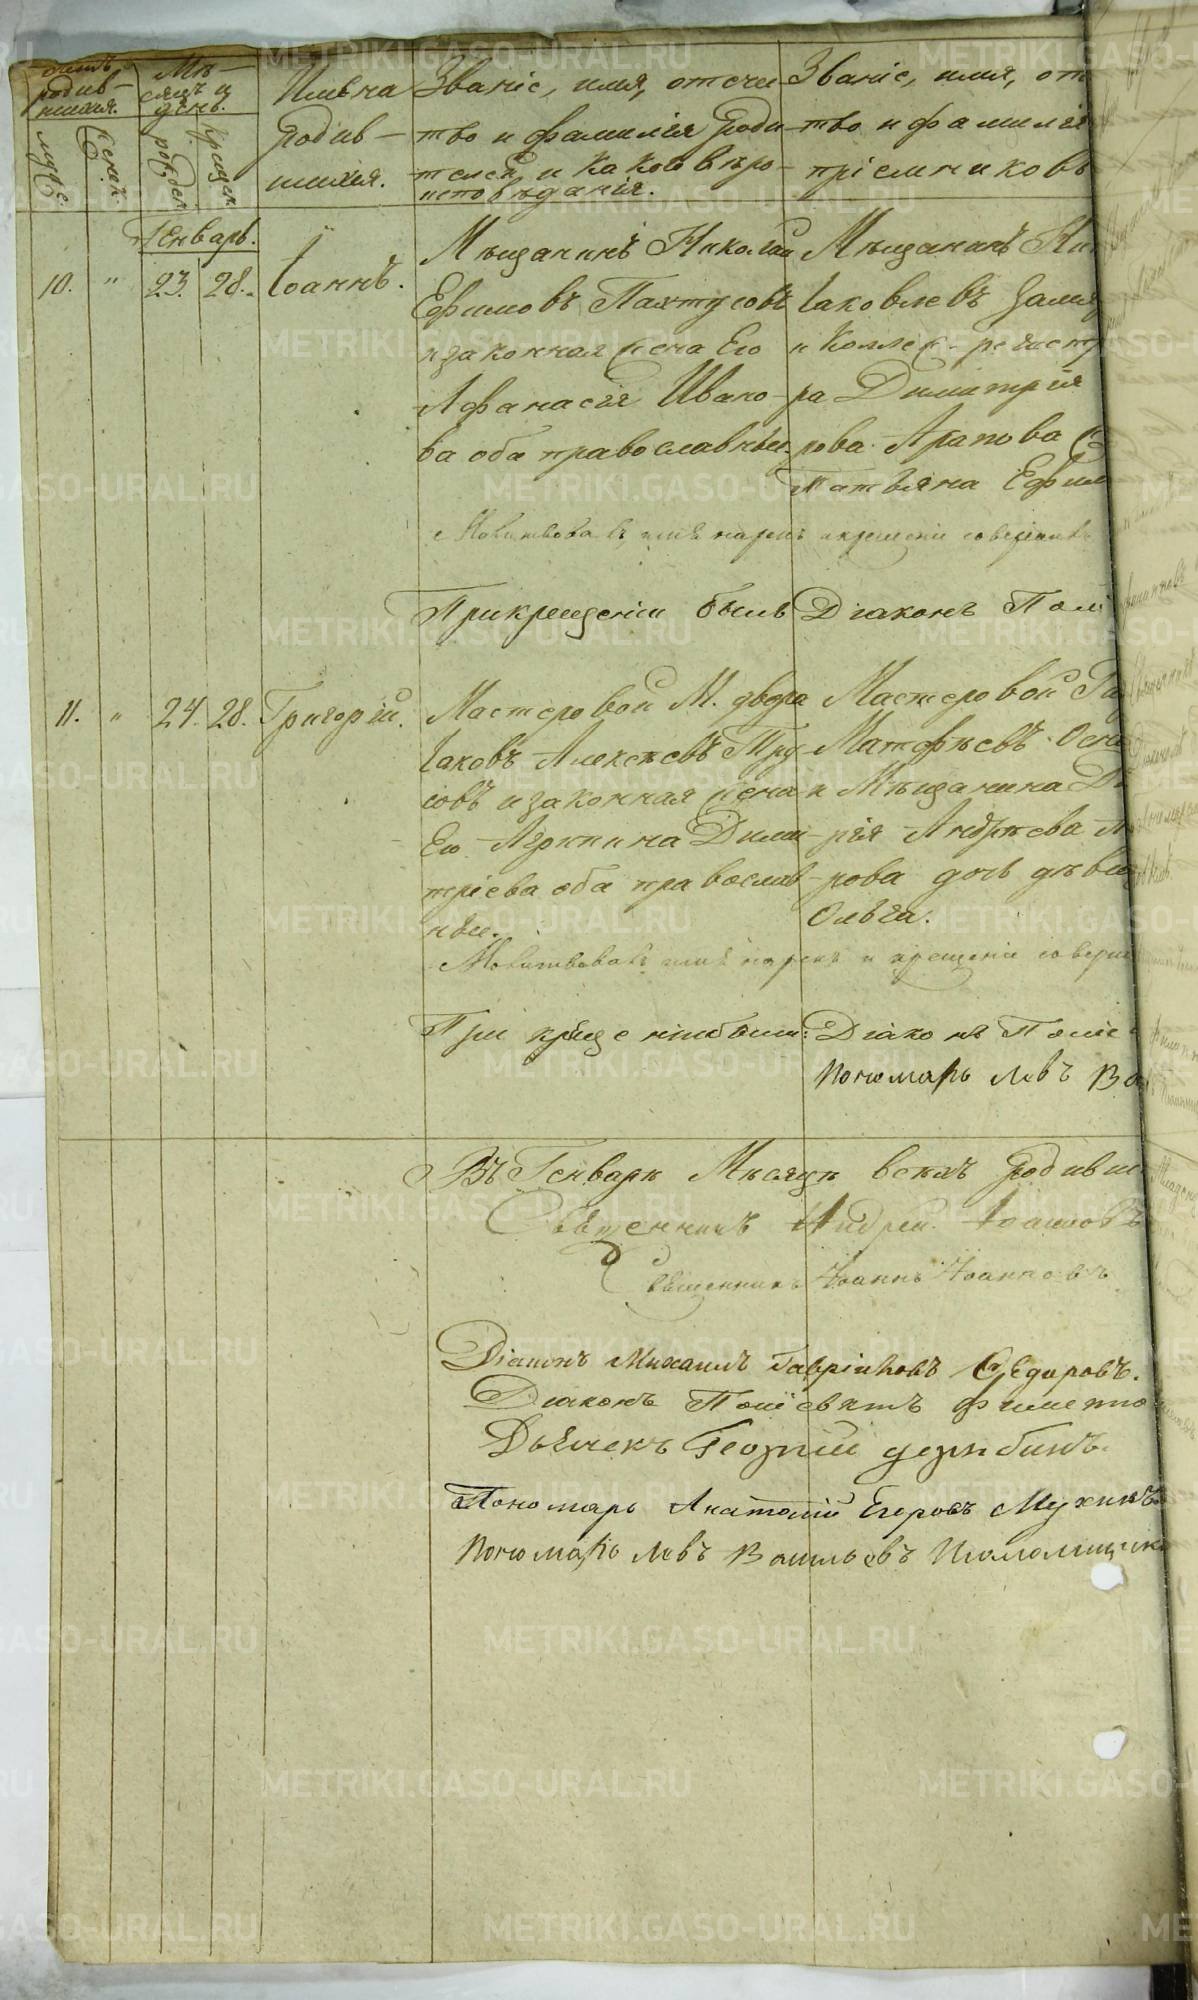 METRIKI.GASO-URAL.RU
родив-
шихся.
Мѣ-
сяцъ и
день.
Имена
родив-
шихся.
Званіе, имя, отече
тво и фамилія роди-
телей, и какого вѣро-
исповѣданія.
Званіе, имя, от
тво и фамилія
пріемниковъ
Генварь.
10. " 23. 28. Іоаннъ.
Мѣщанинъ Николай
Ефимовъ Пахтусовъ
и законная жена Его
Афанасія Ивано-
ва оба православные.
Мѣщанинъ Ни
Іаковлевъ
и Коллеж. регистр
ра Димитрія
рова Арапова
Татьяна Ефим
Молитвовалъ, имя нарекъ и крещеніе совершилъ
При крещеніи былъ Діаконъ Полі
11. " 24. 28. Григорій.
Мастеровой М. двора
Іаковъ Алексѣевъ Тру
совъ и законная жена
Его Агрипина Дими
тріева оба православ
ные.
Мастеровой
Матфѣевъ
и Мѣщанина
рія Андрѣева
рова дочь дѣвица
Ольга.
Молитвовалъ имя нарекъ и крещеніе соверши
При крещеніи были: Діаконъ Полі
Пономарь Левъ Ва
Въ Генварѣ Мѣсяцѣ всехъ Родивш
Священникъ Андрей Іоанновъ
Священникъ Іоаннъ Іоанновъ
Діаконъ Михаилъ Гавріиловъ Ѳедоровъ.
Діаконъ Поліевктъ
Дьячекъ Георгій Дерябинъ.
Пономарь Анатолій Егоровъ Мухинъ
Пономарь Левъ Васильевъ